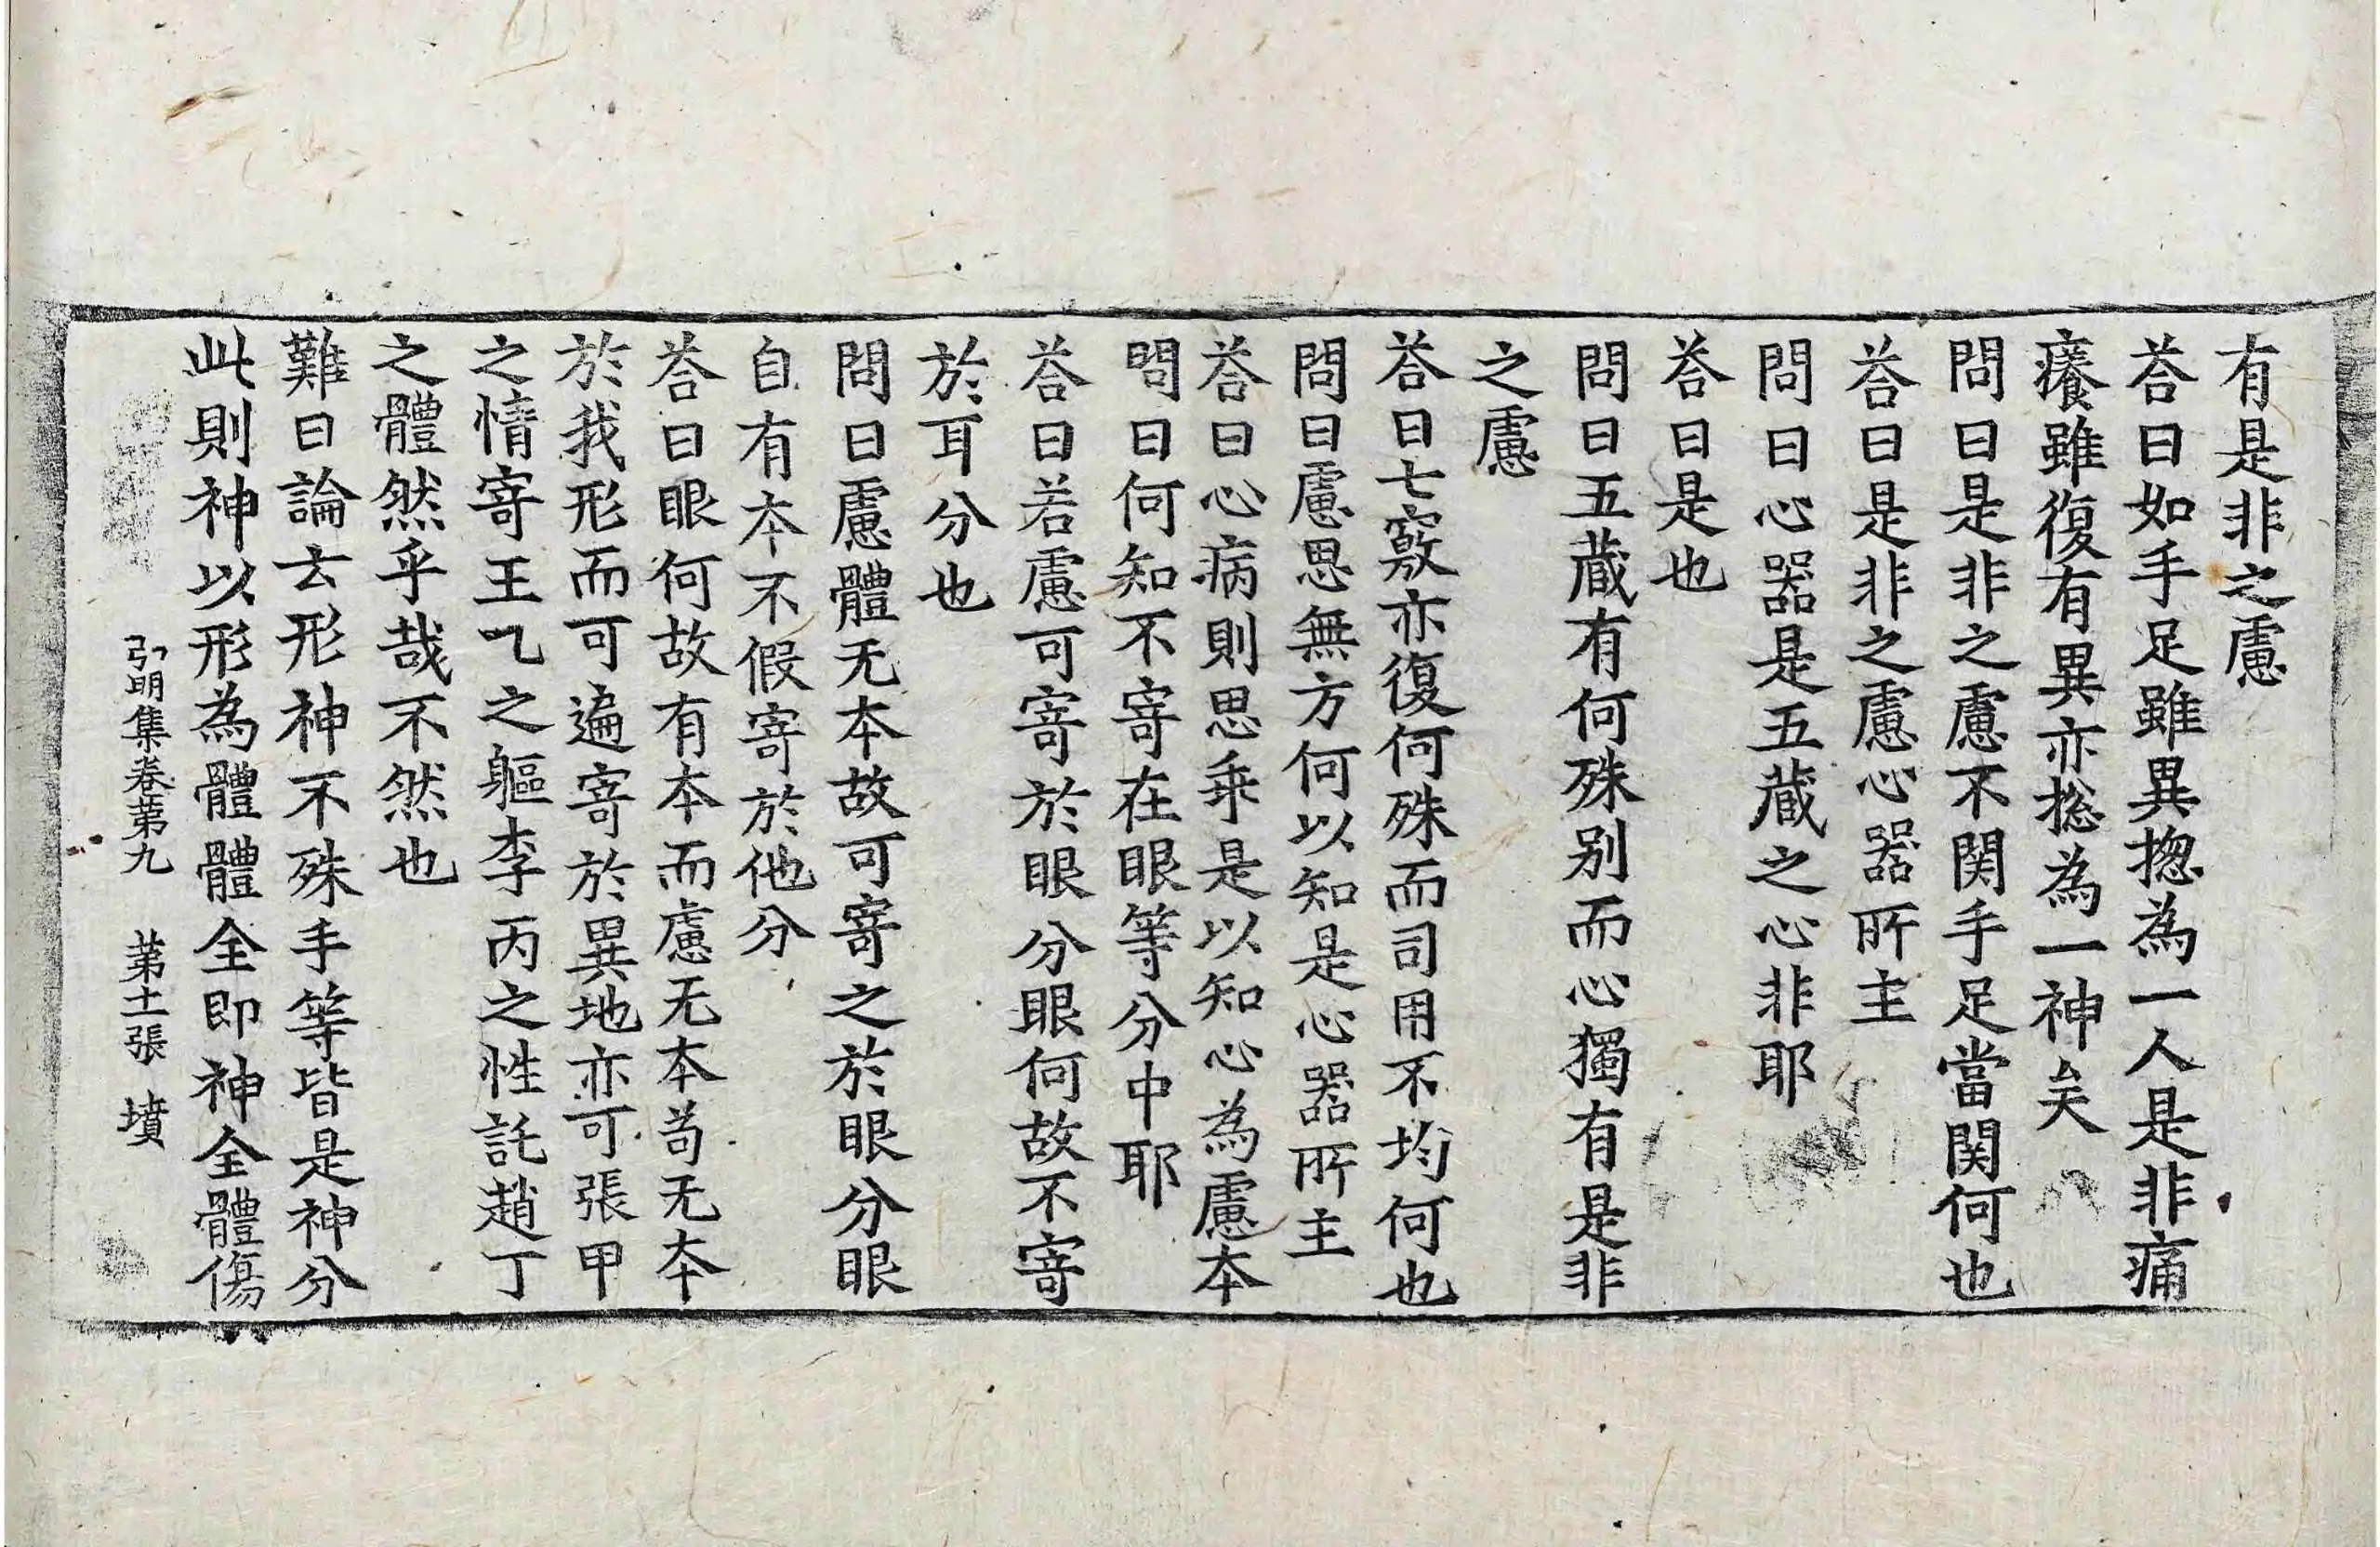 有是非之慮
荅曰如手足雖異揔為一人是非痛
癢雖復有異亦捴為一神矣
問曰是非之慮不関手足當関何也
荅曰是非之慮心器所主
問曰心器是五蔵之心非耶
荅曰是也
問曰五蔵有何殊别而心獨有是非
之慮
荅曰七竅亦復何殊而司用不均何也
問曰慮思無方何以知是心器所主
荅曰心病則思乖是以知心為慮本
問曰何知不寄在眼等分中耶
荅曰若慮可寄於眼分眼何故不寄
於耳分也
問曰慮體无本故可寄之於眼分眼
自有本不假寄於他分
荅曰眼何故有本而慮无本苟无本
於我形而可遍寄於異地亦可張甲
之情寄王乙之軀李丙之性託趙丁
之體然乎哉不然也
難曰論云形神不殊手等皆是神分
此則神以形為體體全即神全體傷
弘明集卷第九　第十二張　墳